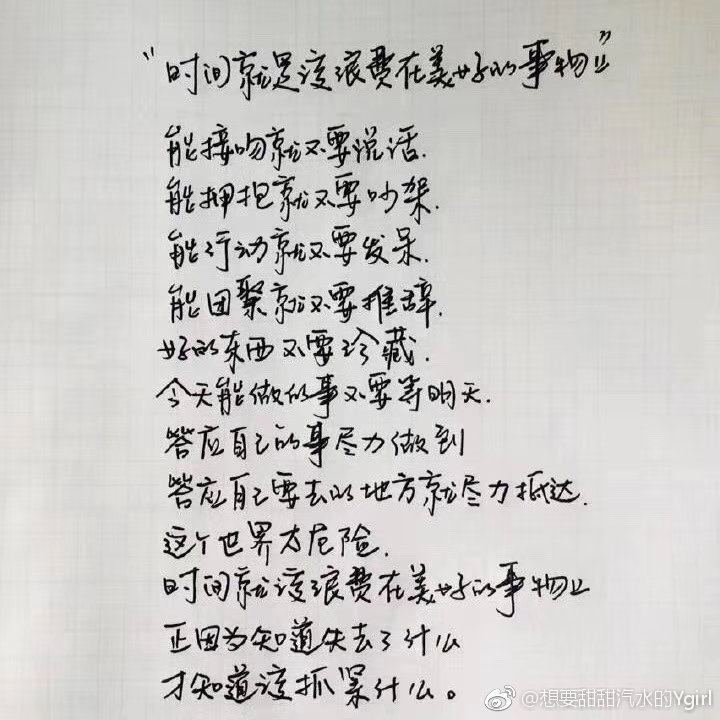 “时间就是该浪费在美好的事物上”
能接吻就不要说话.
能拥抱就不要吵架.
能行动就不要发呆.
能团聚就不要推辞.
好的东西不要珍藏.
今天能做的事不要等明天.
答应自己的事尽力做到
答应自己要去的地方就尽力抵达.
这个世界太危险.
时间就该浪费在美好的事物上
正因为知道失去了什么
才知道该抓紧什么。
@想要甜甜汽水的Ygirl